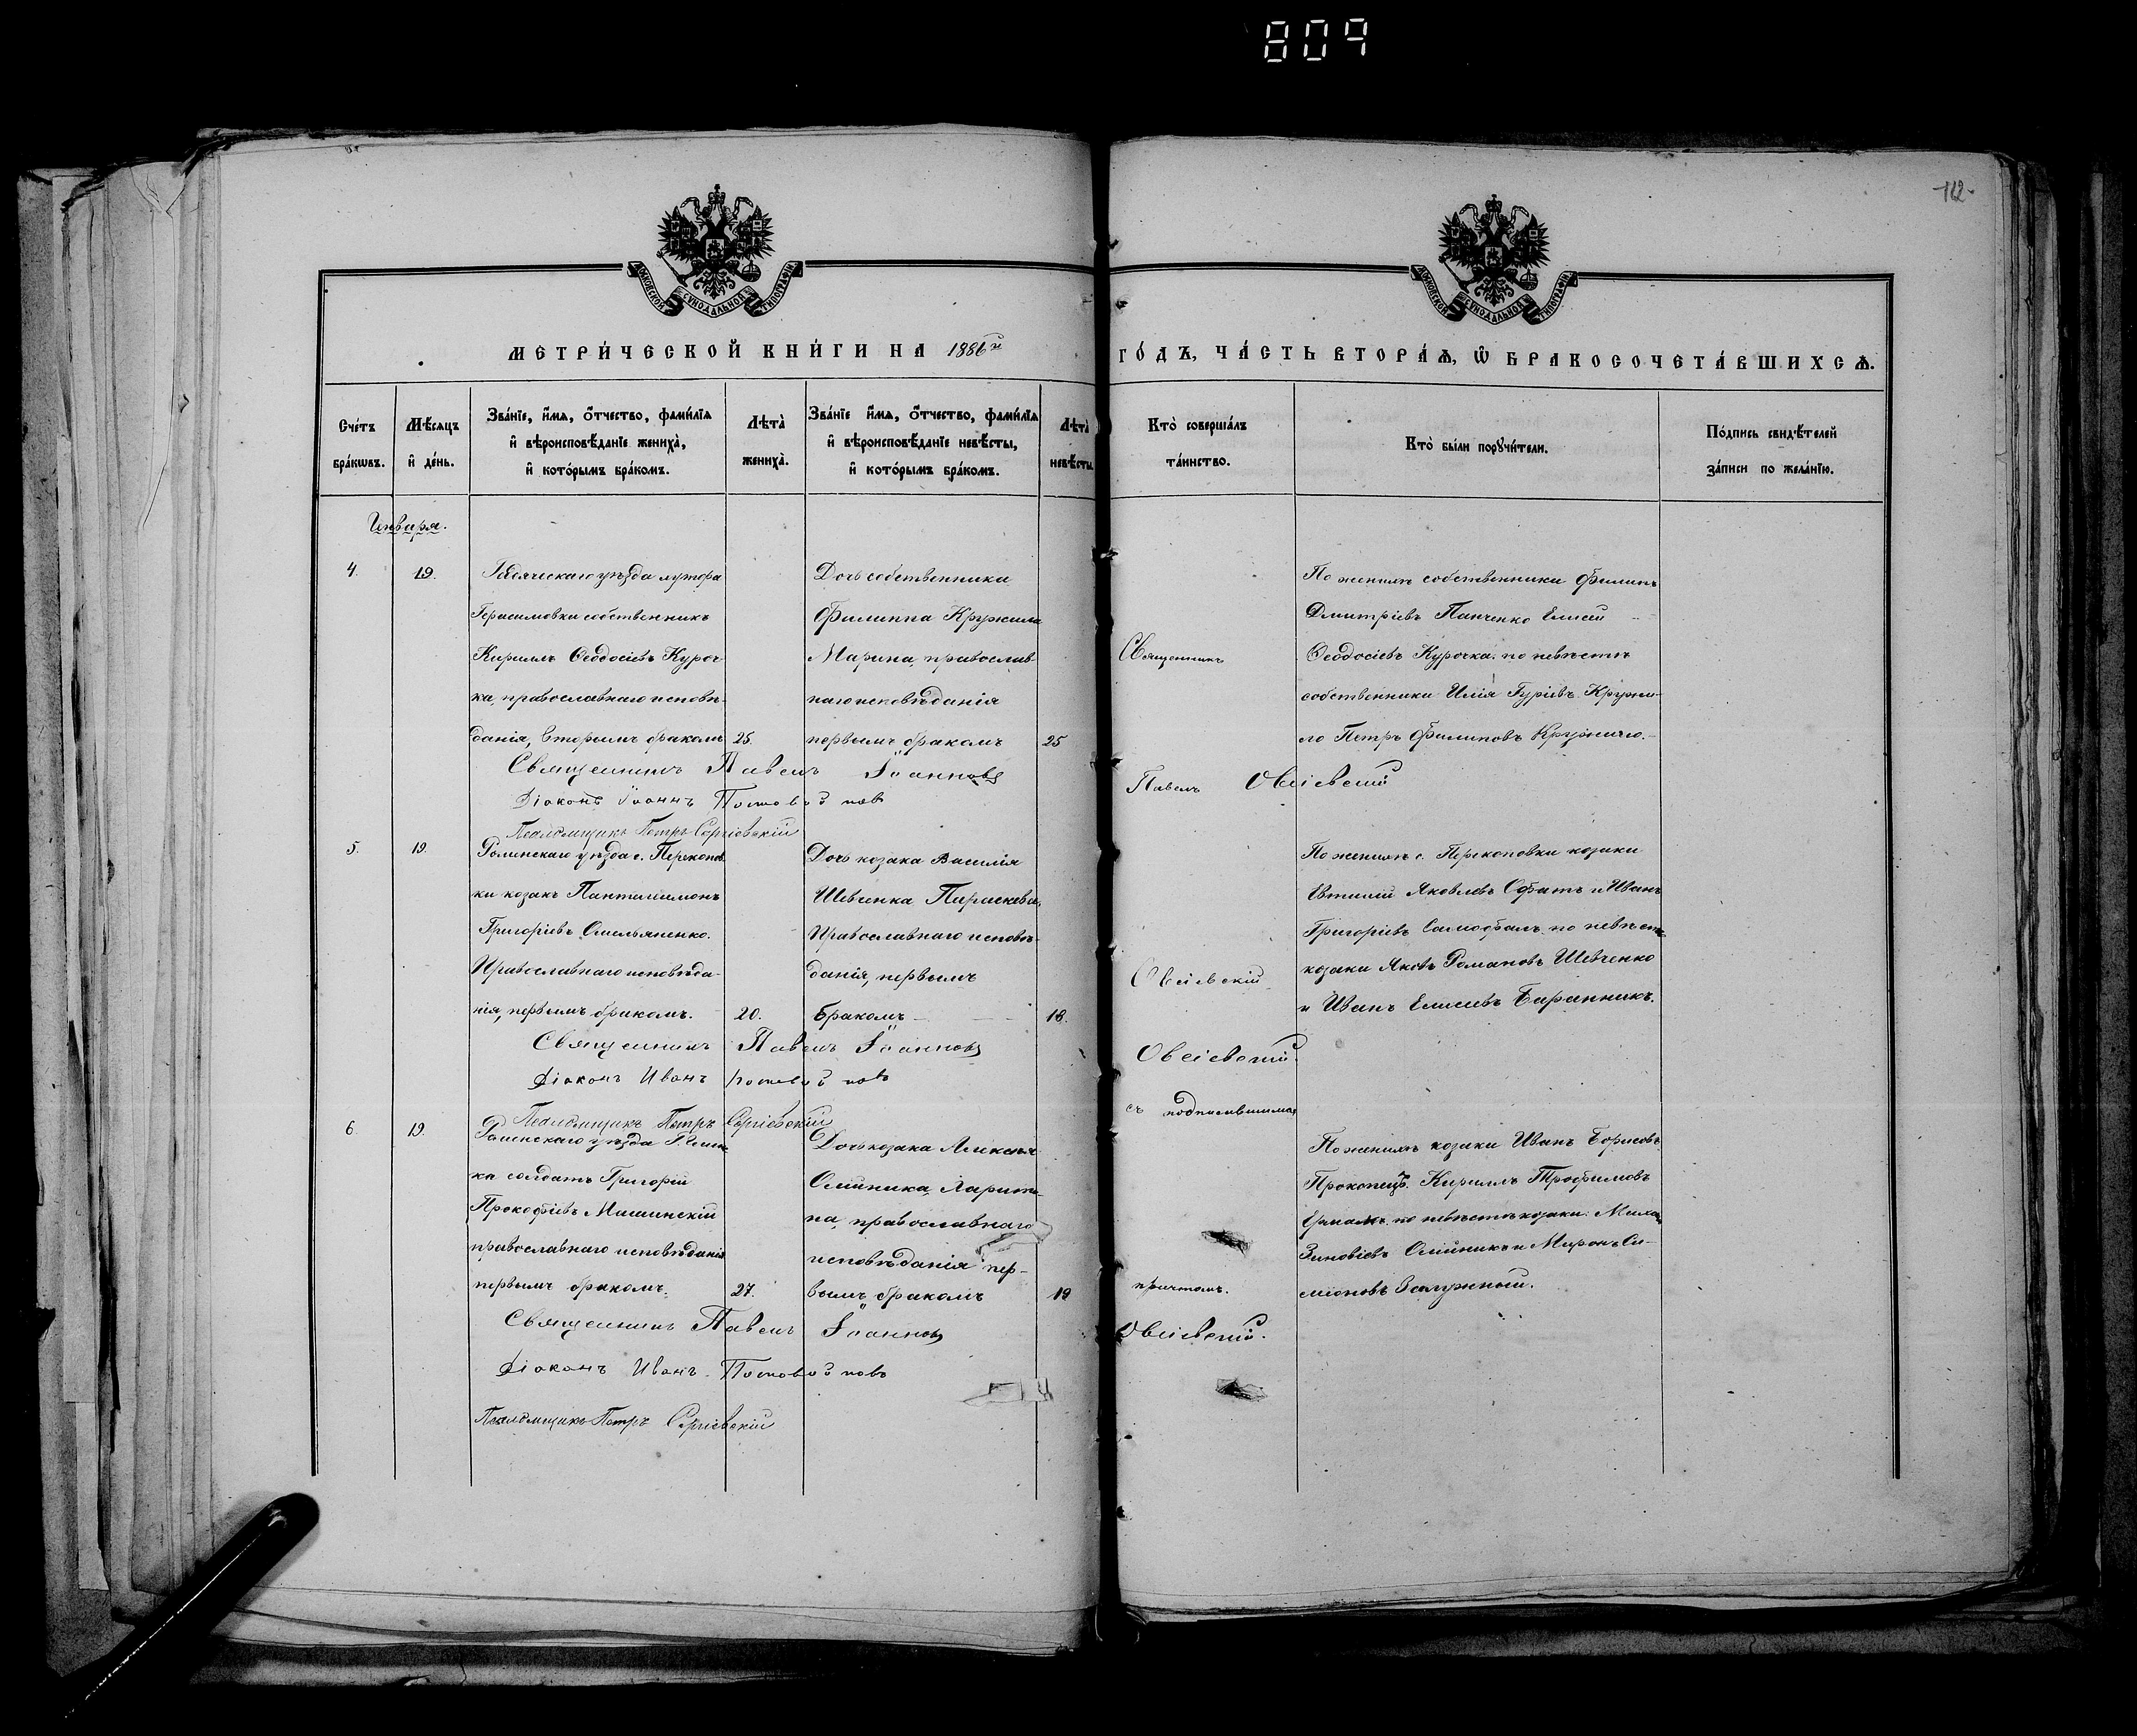 809
112
МОСКОВСКОЙ СѴНОДАЛЬНОЙ ТИПОГРАФІИ
МОСКОВСКОЙ СѴНОДАЛЬНОЙ ТИПОГРАФІИ
МЕТРИ́ЧЕСКОЙ КНИ́ГИ НА 1886й
ГО́ДЪ, ЧА́СТЬ ВТОРА́Ѧ, Ѿ БРАКОСОЧЕТА́ВШИХСѦ.
Сче́тъ бра́кωвъ.
Мѣ́сяцъ и҆ де́нь.
Зва́нїе, и҆́мя, ѻ҆́тчество, фами́лїя
и҆ вѣроисповѣ́данїе жениха̀,
и҆ кото́рымъ бра́комъ.
Лѣта̀ жениха̀.
Зва́нїе и҆́мя, ѻ҆́тчество, фами́лїя
и҆ вѣроисповѣ́данїе невѣ́сты,
и҆ кото́рымъ бра́комъ.
Лѣта̀ невѣ́сты.
Кто̀ соверша́лъ
та́инство.
Кто̀ бы́ли порꙋчи́тели.
По́дпись свидѣ́телей
за́писи по жела́нїю.
Января.
4.
19.
Гадяческаго уѣзда хутора
Герасимовки собственникъ
Кириллъ Ѳеодосіевъ Куроч-
ка, православнаго исповѣ-
данія, вторымъ бракомъ
25.
Дочь собственника
Филиппа Кружила
Марина, православ-
наго исповѣданія
первымъ бракомъ
25
Священникъ
По женихѣ собственники Филипъ
Дмитріевъ Панченко Елисей
Ѳеодосіевъ Курочка. по невѣстѣ
собственники Илія Гуріевъ Кружи-
ло Петръ Филиповъ Кружило.
Священникъ Павелъ Іоанновъ
Павелъ Овсіевскій
Діаконъ Іоаннъ
Псаломщикъ Петръ Сергіевскій
5.
19.
Роменскаго уѣзда с. Перекопов-
ки козакъ Пантелиимонъ
Григоріевъ Омельяненко.
Православнаго исповѣда-
нія, первымъ бракомъ.
20.
Дочь козака Василія
Шевченка Параскева,
Православнаго исповѣ-
данія, первымъ
бракомъ
18.
Овсіевскій
По женихѣ с. Перекоповки козаки
Яковлевъ и Иванъ
Григоріевъ по невѣстѣ
козаки Яковъ Романовъ Шевченко
и Иванъ Елисеевъ Баранникъ.
Священникъ Павелъ Іоанновъ
Овсіевскій.
Діаконъ Иванъ
Псаломщикъ Петръ Сергіевскій
съ подписавшимся
6.
19.
Роменскаго уѣзда
ка солдатъ Григорій
Прокофіевъ
православнаго исповѣданія
первымъ бракомъ.
27.
Дочь козака Алексѣя
Олійника, Харити-
на, православнаго
исповѣданія пер-
вымъ бракомъ
19
причтомъ.
По женихѣ козаки Иванъ Борисовъ
Прокопецъ. Кириллъ Трофимовъ
по невѣстѣ козаки:
Зиновіевъ Олійникъ и Миронъ Си-
міоновъ Залужный.
Священникъ Павелъ Іоанновъ
Овсіевскій.
Діаконъ Иванъ
Псаломщикъ Петръ Сергіевскій